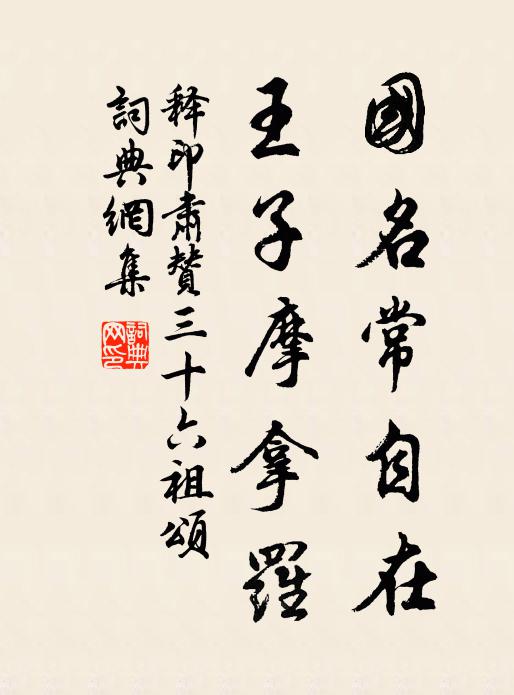 國名常自在
王子摩拿羅
释印肅贊三十六祖頌
詞典網集
詞典网印